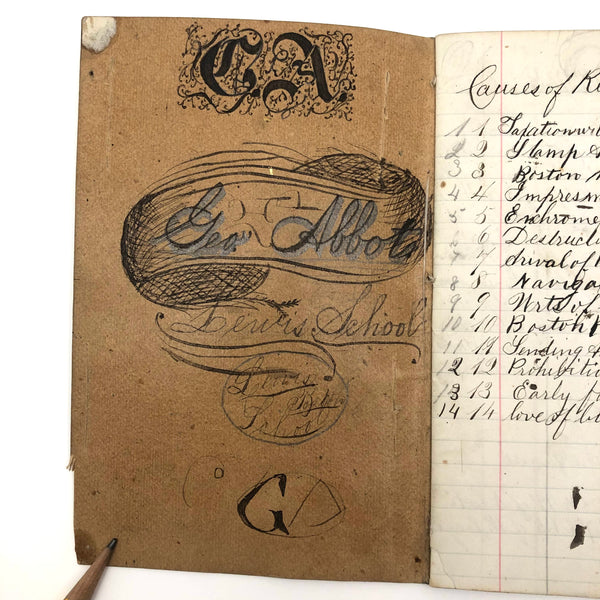 G.A.
Geo Abbot
Lewis School
Lewis
School
G
Causes of Re
1 1 Taxation wi
2 2 Stamp A
3 3 Boston M
4 4 Impresm
5 5
6 6 Destructi
7 7 Arival of
8 8 Naviga
9 9 Writs of
10 10 Boston P
11 11 Sending
12 12 Prohibitio
13 13 Early
14 14 love of